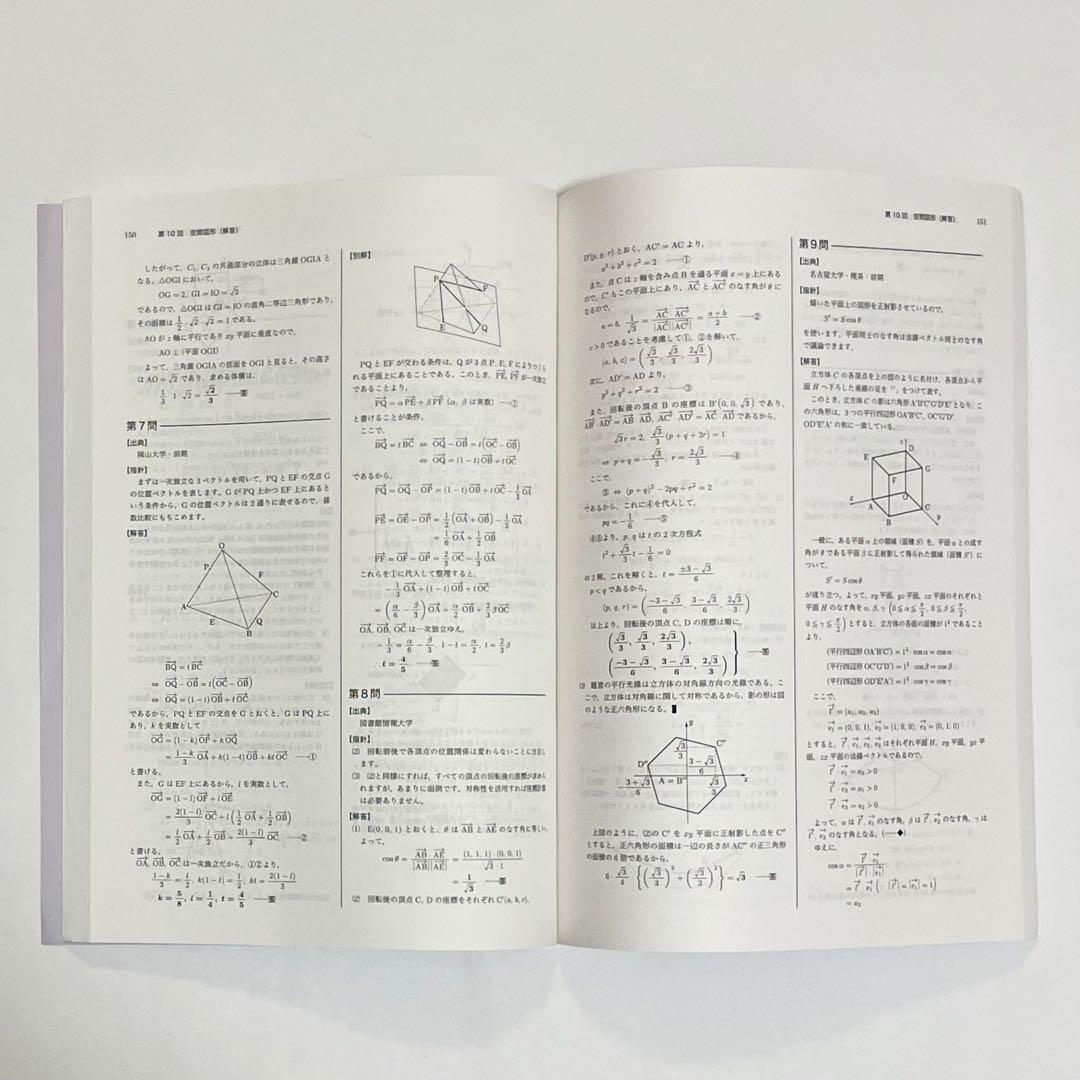 150 第10回 空間図形（解答）
したがって，C₁，C₂ の共通部分の立体は三角錐 OGIA と
なる。△OGI において，
OG = 2, GI = IO = √2
であるので，△OGI は GI = IO の直角二等辺三角形であり，
その面積は 1/2・√2・√2 = 1 である。
AO が z 軸に平行であり xy 平面に垂直なので，
AO ⊥ (平面 OGI)
よって，三角錐 OGIA の底面を OGI と見ると，その高さ
は AO = √2 であり，求める体積は，
1/3・1・√2 = √2/3 ——答
第7問
【出典】
岡山大学・前期
【指針】
まずは一次独立な3ベクトルを用いて，PQ と EF の交点 G
の位置ベクトルを表します。G が PQ 上かつ EF 上にあると
いう条件から，G の位置ベクトルは2通りに表せるので，係
数比較にもちこめます。
【解答】
O
P
F
A
C
E
B
Q
BQ→ = tBC→
⇔ OQ→ − OB→ = t(OC→ − OB→)
⇔ OQ→ = (1−t)OB→ + tOC→
であるから，PQ と EF の交点を G とおくと，G は PQ 上に
あり，k を実数として
OG→ = (1−k)OP→ + kOQ→
= (1−k)/3 OA→ + k(1−t)OB→ + ktOC→ ——①
と書ける。
また，G は EF 上にあるから，l を実数として，
OG→ = (1−l)OF→ + lOE→
= 2(1−l)/3 OC→ + l(1/2 OA→ + 1/2 OB→)
= l/2 OA→ + l/2 OB→ + 2(1−l)/3 OC→ ——②
と書ける。
OA→, OB→, OC→ は一次独立だから，①②より，
(1−k)/3 = l/2, k(1−t) = l/2, kt = 2(1−l)/3
∴ k = 5/8, l = 1/4, t = 4/5 ——答
【別解】
P
F
E
Q
PQ と EF が交わる条件は，Q が3点 P, E, F によりつくら
れる平面上にあることである。このとき，PE→, PF→ が一次独立
であることより，
PQ→ = αPE→ + βPF→ (α, β は実数) ——①
と書けることが条件。
ここで，
BQ→ = tBC→ ⇔ OQ→ − OB→ = t(OC→ − OB→)
⇔ OQ→ = (1−t)OB→ + tOC→
であるから，
PQ→ = OQ→ − OP→ = (1−t)OB→ + tOC→ − 1/3 OA→
PE→ = OE→ − OP→ = 1/2(OA→ + OB→) − 1/3 OA→
= 1/6 OA→ + 1/2 OB→
PF→ = OF→ − OP→ = 2/3 OC→ − 1/3 OA→
これらを①に代入して整理すると，
−1/3 OA→ + (1−t)OB→ + tOC→
= (α/6 − β/3)OA→ + α/2 OB→ + 2/3 βOC→
OA→, OB→, OC→ は一次独立ゆえ，
−1/3 = α/6 − β/3, 1−t = α/2, t = 2/3 β
∴ t = 4/5 ——答
第8問
【出典】
図書館情報大学
【指針】
(2) 回転前後で各頂点の位置関係は変わらないことに注目し
ます。
(3) (2)と同様にすれば，すべての頂点の回転後の座標が求めら
れますが，あまりに面倒です。対称性を活用すれば座標計算
は必要ありません。
【解答】
(1) E(0, 0, 1) とおくと，θ は AB→ と AE→ のなす角に等しい。
よって，
cosθ = AB→・AE→/|AB→||AE→| = (1, 1, 1)・(0, 0, 1)/√3・1
= 1/√3 ——答
(2) 回転後の頂点 C, D の座標をそれぞれ C′(a, b, c),
第10回 空間図形（解答） 151
D′(p, q, r) とおく。AC′ = AC より，
a² + b² + c² = 2 ——①
また，点 C は z 軸を含み点 B を通る平面 x = y 上にある
ので，C′ もこの平面上にあり，AC→ と AC′→ のなす角が θ に
なるので，
a = b, 1/√3 = AC→・AC′→/|AC→||AC′→| = (a+b)/2 ——②
c > 0 であることを考慮して①，②を解いて，
(a, b, c) = (√3/3, √3/3, 2√3/3)
次に，AD′ = AD より
p² + q² + r² = 2 ——③
また，回転後の頂点 B の座標は B′(0, 0, √3) であり，
AB′→・AD′→ = AB→・AD→, AC′→・AD′→ = AC→・AD→ であるから，
√3r = 2, √3/3(p + q + 2r) = 1
⇔ p + q = −√3/3, r = 2√3/3 ——④
ここで，
③ ⇔ (p+q)² − 2pq + r² = 2
であるから，これに④を代入して，
pq = −1/6 ——⑤
④⑤より，p, q は t の2次方程式
t² + √3/3 t − 1/6 = 0
の2解。これを解くと，t = (±3−√3)/6
p < q であるから，
(p, q, r) = ((−3−√3)/6, (3−√3)/6, 2√3/3)
以上より，回転後の頂点 C, D の座標は順に，
(√3/3, √3/3, 2√3/3)
((−3−√3)/6, (3−√3)/6, 2√3/3) ——答
(3) 題意の平行光線は立方体の対角線方向の光線である。こ
こで，立方体は対角線に関して対称であるから，影の形は図
のような正六角形になる。
y
√3/3
C″
D″
(3−√3)/6
−(3+√3)/6
A = B″
√3/3
x
上図のように，(2)の C′ を xy 平面に正射影した点を C″
とすると，正六角形の面積は一辺の長さが AC″ の正三角形
の面積の6個であるから，
6・√3/4{(√3/3)² + (√3/3)²} = √3 ——答
第9問
【出典】
名古屋大学・理系・前期
【指針】
傾いた平面上の図形を正射影させているので，
S′ = S cosθ
を使います。平面同士のなす角は法線ベクトル同士のなす角
で議論できます。
【解答】
立方体 C の各頂点を上の図のように名付け，各頂点から平
面 H へ下ろした垂線の足を「′」をつけて表す。
このとき，立方体 C の影は六角形 A′B′C′G′D′E′ となり，こ
の六角形は，3つの平行四辺形 OA′B′C′, OC′G′D′,
OD′E′A′ の和に一致している。
z
D
E
G
F
x
A
O
C
B
y
一般に，ある平面 α 上の領域 (面積 S) を，平面 α との成す
角が θ である平面 β に正射影して得られた領域 (面積 S′) に
ついて，
S′ = S cosθ
が成り立つ。よって，xy 平面，yz 平面，zx 平面のそれぞれと
平面 H のなす角を α, β, γ (0≦α≦π/2, 0≦β≦π/2,
0≦γ≦π/2) とすると，立方体の各面の面積が 1² であること
より，
(平行四辺形 OA′B′C′) = 1²・cosα = cosα
(平行四辺形 OC′G′D′) = 1²・cosβ = cosβ
(平行四辺形 OD′E′A′) = 1²・cosγ = cosγ
ここで，
l→ = (a₁, a₂, a₃)
e₁→ = (0, 0, 1), e₂→ = (1, 0, 0), e₃→ = (0, 1, 0)
とすると，l→, e₁→, e₂→, e₃→ はそれぞれ平面 H, xy 平面，yz 平
面，zx 平面の法線ベクトルであるので，
l→・e₁→ = a₃ > 0
l→・e₂→ = a₁ > 0
l→・e₃→ = a₂ > 0
よって，α は l→, e₁→ のなす角，β は l→, e₂→ のなす角，γ は
l→, e₃→ のなす角となる。(——◆)
ゆえに，
cosα = l→・e₁→/|l→|・|e₁→|
= l→・e₁→ (∵ |l→| = |e₁→| = 1)
= a₃